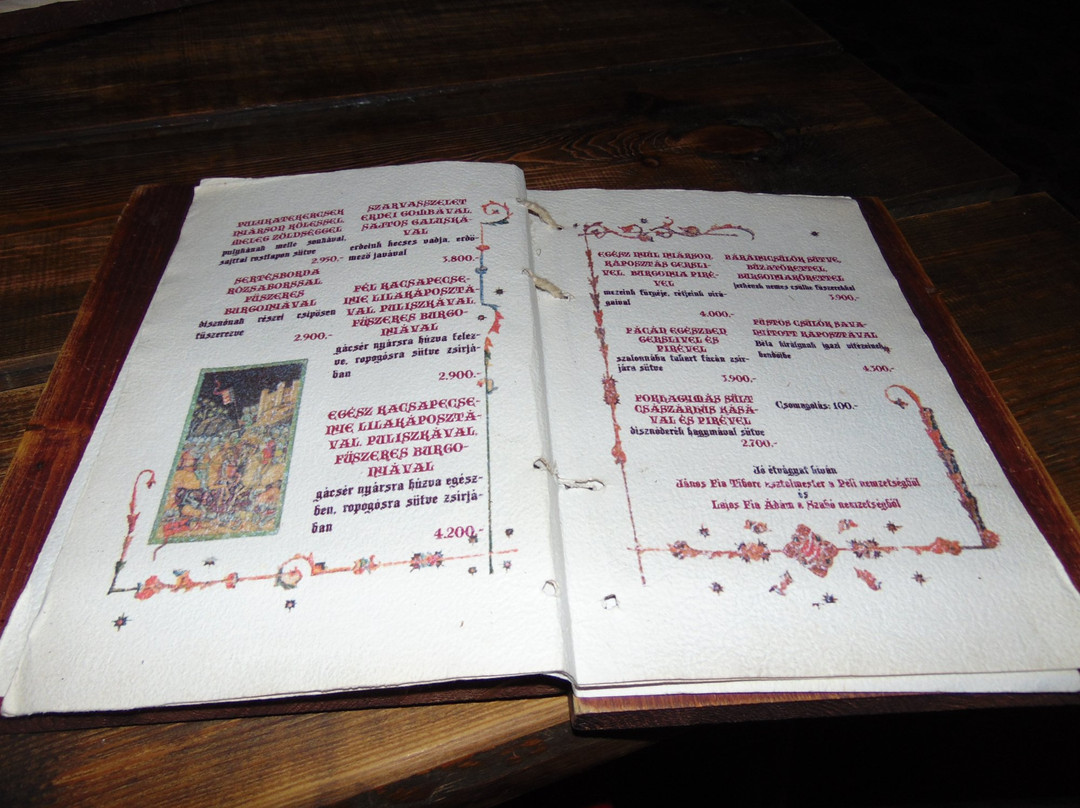 PULYKATEKERCSEK
NYÁRSON KÖLESSEL,
MELEG ZÖLDSÉGGEL
pulykának melle sonkával,
sajttal rostlapon sütve
2.950,-
SERTÉSBORDA
RÓZSABORSSAL
FŰSZERES
BURGONYÁVAL
disznónak részei csipősen
fűszerezve 2.900,-
SZARVASSZELET
ERDEI GOMBÁVAL,
SAJTOS GALUSKÁ-
VAL
erdeink kecses vadja, erdő-
mező javával 3.800.-
FÉL KACSAPECSE-
NYE LILAKÁPOSZTÁ-
VAL PULISZKÁVAL,
FŰSZERES BURGO-
NYÁVAL
gácsér nyársra húzva felez-
ve, ropogósra sütve zsirjá-
ban 2.900.-
EGÉSZ KACSAPECSE-
NYE LILAKÁPOSZTÁ-
VAL, PULISZKÁVAL,
FŰSZERES BURGO-
NYÁVAL
gácsér nyársra húzva egész-
ben, ropogósra sütve zsirjá-
ban 4.200.-
EGÉSZ NYÚL NYÁRSON,
KÁPOSZTÁS GERSLI-
VEL, BURGONYA PIRÉ-
VEL
mezeink fürgéje, rétjeink virá-
gaival
4.000.-
FÁCÁN EGÉSZBEN
GERSLIVEL ÉS
PIRÉVEL
szalonnába takart fácán zsir-
jára sütve
3.900.-
FOKHAGYMÁS SÜLT
CSÁSZÁRHÚS KÁSÁ-
VAL ÉS PIRÉVEL
disznóderék hagymával sütve
2.700.-
BÁRÁNYCSÜLÖK SÜTVE,
BURGONYAKÖRETTEL
nemes csülke fűszerekkel
3.900.-
FÜSTÖS CSÜLÖK SAVA-
NYÍTOTT KÁPOSZTÁVAL
Béla királynak igazi vitézeinek
bendőibe
4.300.-
Csomagolás: 100.-
Jó étvágyat kíván
János Fia Tibor asztalmester a Péli nemzetségből
és
Lajos Fia Ádám a Szabó nemzetségből